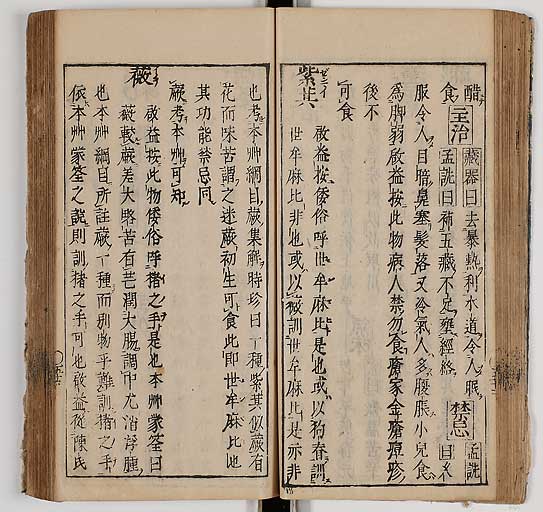 醋食 主治 藏器曰去暴熱利水道令人眠
孟詵曰補五臟不足壅經絡 禁忌 孟詵曰久
服令人目暗鼻塞髮落又冷氣人多腹脹小兒食
爲脚弱啟益按此物病人禁勿食瘡家金瘡痘疹
後不可食
紫萁
啟益按倭俗呼世牟麻比是也或以狗脊訓
世牟麻比非也或以薇訓世牟麻比是亦非
也考本艸綱目蕨集解時珍曰一種紫萁似蕨有
花而味苦謂之迷蕨初生可食此即世牟麻比也
其功能禁忌同蕨考本艸可知
薇
啟益按此物倭俗呼猪之手是也本艸蒙筌曰
薇較蕨差大略苦有芒潤大腸調中尤消浮腫
也本艸綱目所註蕨一種而別物乎難訓猪之手
依本艸蒙筌之説則訓猪之手可也啟益從陳氏